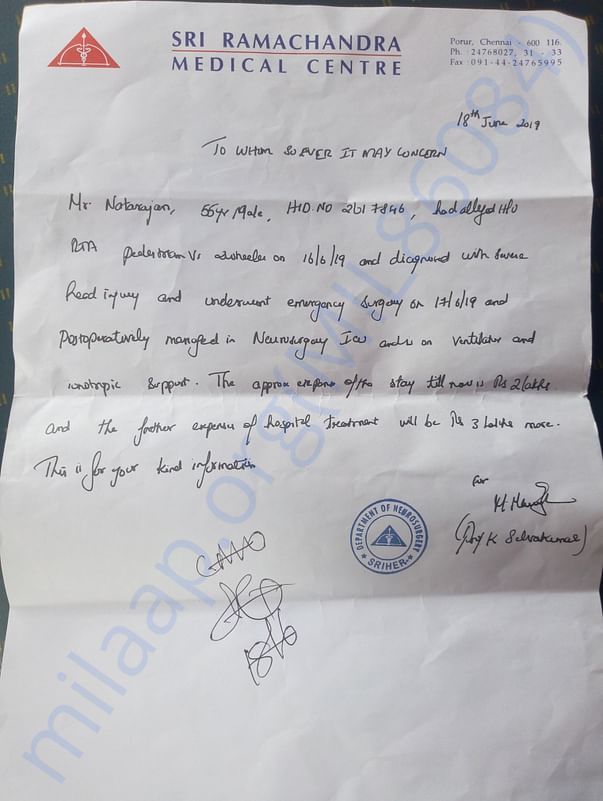 SRI RAMACHANDRA
MEDICAL CENTRE
Porur, Chennai - 600 116.
Ph : 24768027, 31 - 33
Fax : 091-44-24765995
18th June 2019
TO WHOM SO EVER IT MAY CONCERN
Mr. Natarajan, 55yr/Male, HID NO 2617846, had alleged H/o
RTA pedestrian Vs 2wheeler on 16/6/19 and diagnosed with Severe
head injury and underwent emergency surgery on 17/6/19 and
Postoperatively managed in Neurosurgery ICU and is on Ventilator and
ionotropic Support. The approx expense of the stay till now is Rs 2 lakhs
and the further expenses of hospital treatment will be Rs 3 lakhs more.
This is for your kind information
For
(Prof K Selvakumar)
DEPARTMENT OF NEUROSURGERY
SRIHER
CMMO
18/6
milaap.org(MIL86084)